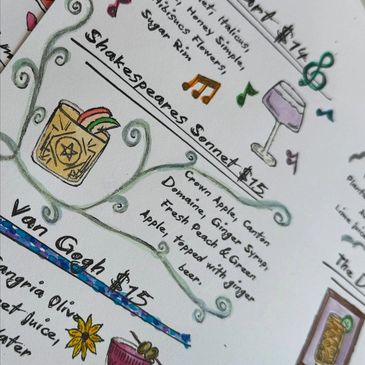 art $14
et, Italicus,
Honey Simple,
Hibiscus Flowers,
Sugar Rim
Shakespeares Sonnet $15
Crown Apple, Canton
Domaine, Ginger Syrup,
Fresh Peach & Green
Apple, topped with ginger
beer.
Van Gogh $15
angria Olive
eet Juice,
Water
the D